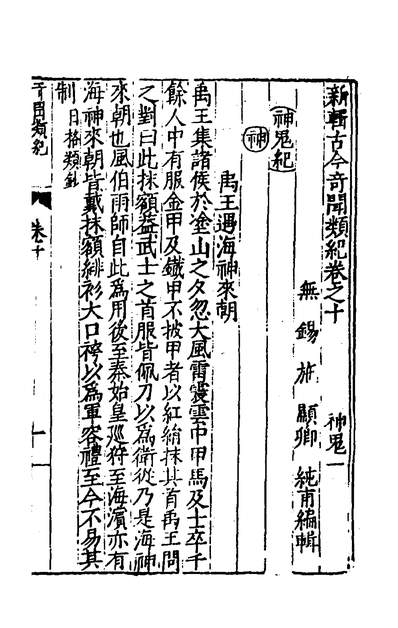 新輯古今奇聞類紀卷之十　神鬼一
無錫施顯卿純甫編輯
神鬼紀
神
禹王遇海神來朝
禹王集諸侯於塗山之夕忽大風雷震雲中甲馬及士卒千
餘人中有服金甲及鐵甲不披甲者以紅綃抹其首禹王問
之對曰此抹額蓋武士之首服皆佩刀以為衛從乃是海神
來朝也風伯雨師自此為用後至秦始皇巡狩至海濱亦有
海神來朝皆戴抹額緋衫大口袴以為軍容禮至今不易其
制　日格類鈔
奇聞類紀　卷十　一